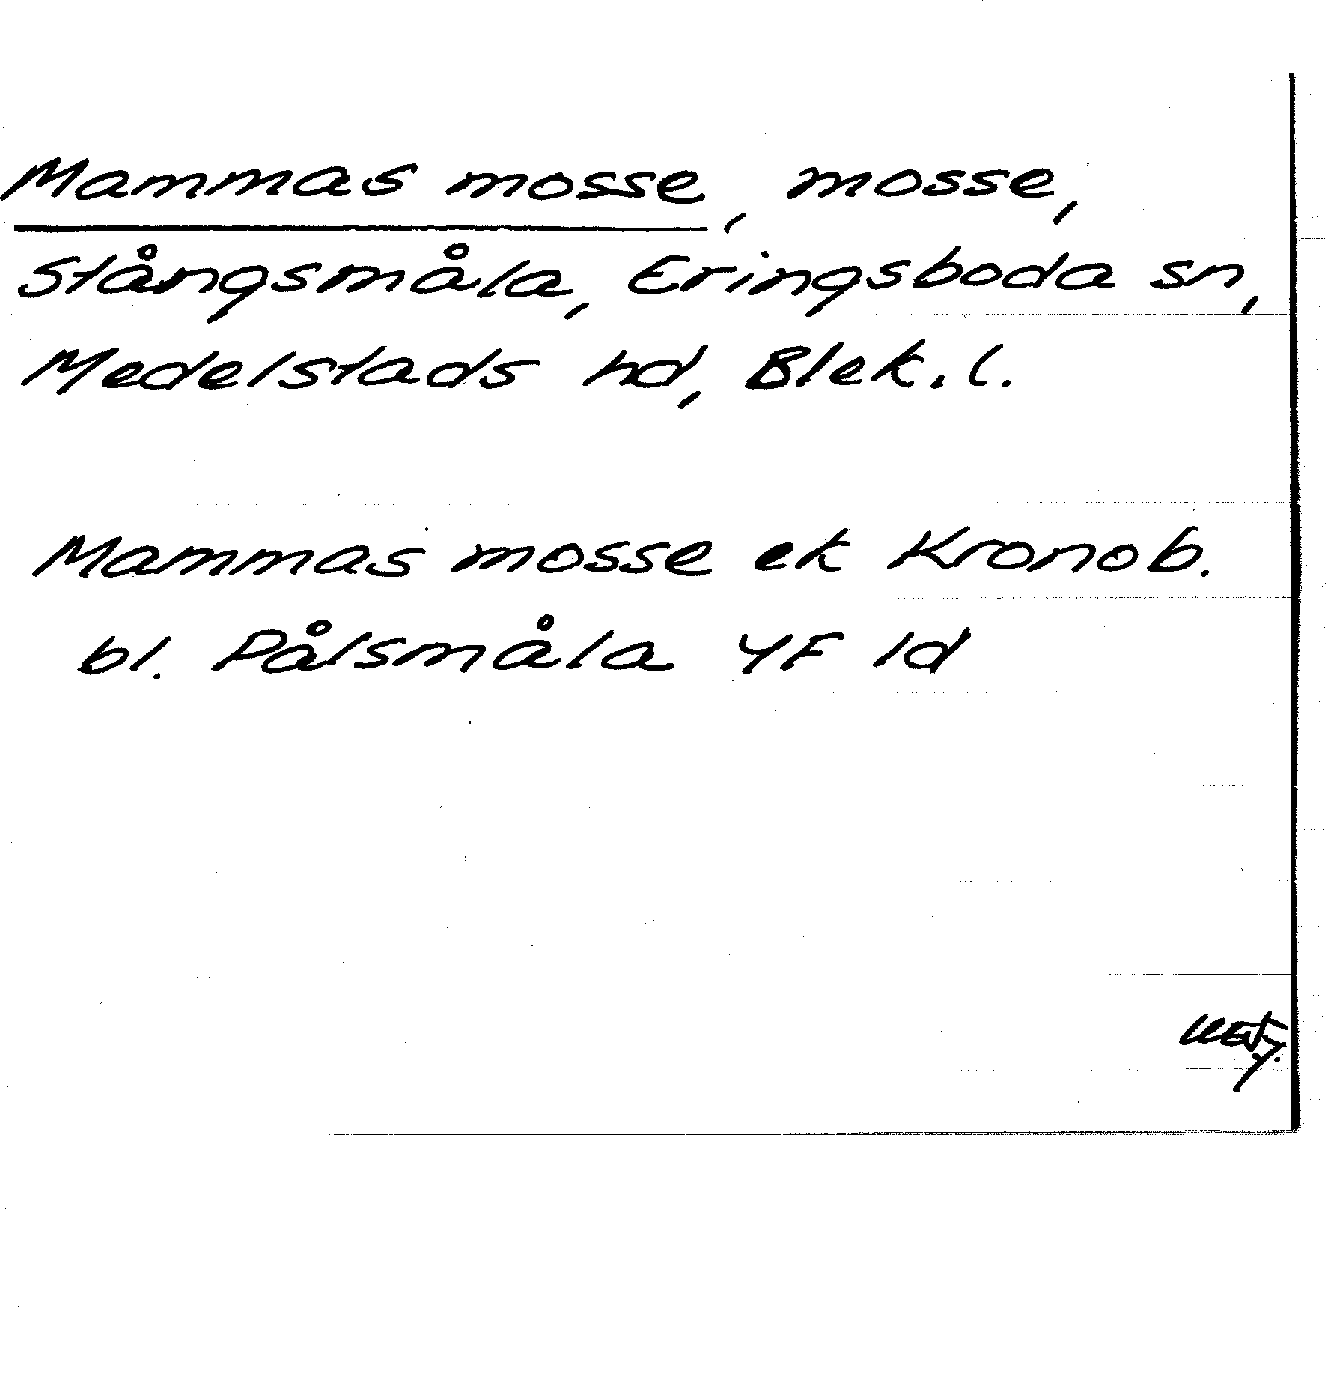 Mammas mosse, mosse,
Stångsmåla, Eringsboda sn,
Medelstads hd, Blek. l.
Mammas mosse ek Kronob.
bl. Pålsmåla 4F 1d